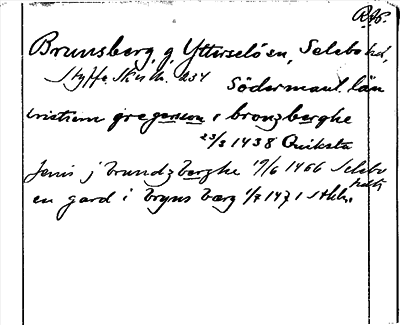 RAP.
Brunsberg, g, Ytterselö sn, Selebo hd,
Styffe Skun. 234
Södermanl. län
cristiern gregersson i bronzberghe
23/3 1438 Quiksta
Jenis j brundzberghe 19/6 1466 Selebo hdtg
en gard i bryns berg 1/7 1471 Sthlm.